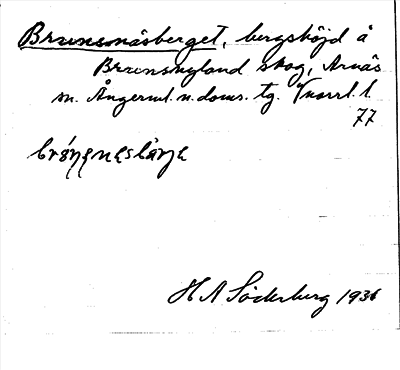 Brunsnäsberget, bergshöjd å
Brunsnyland skog, Arnäs
sn. Ångerml. n. doms. tg. Vnorrl. l.
77
H A Söderburg 1936